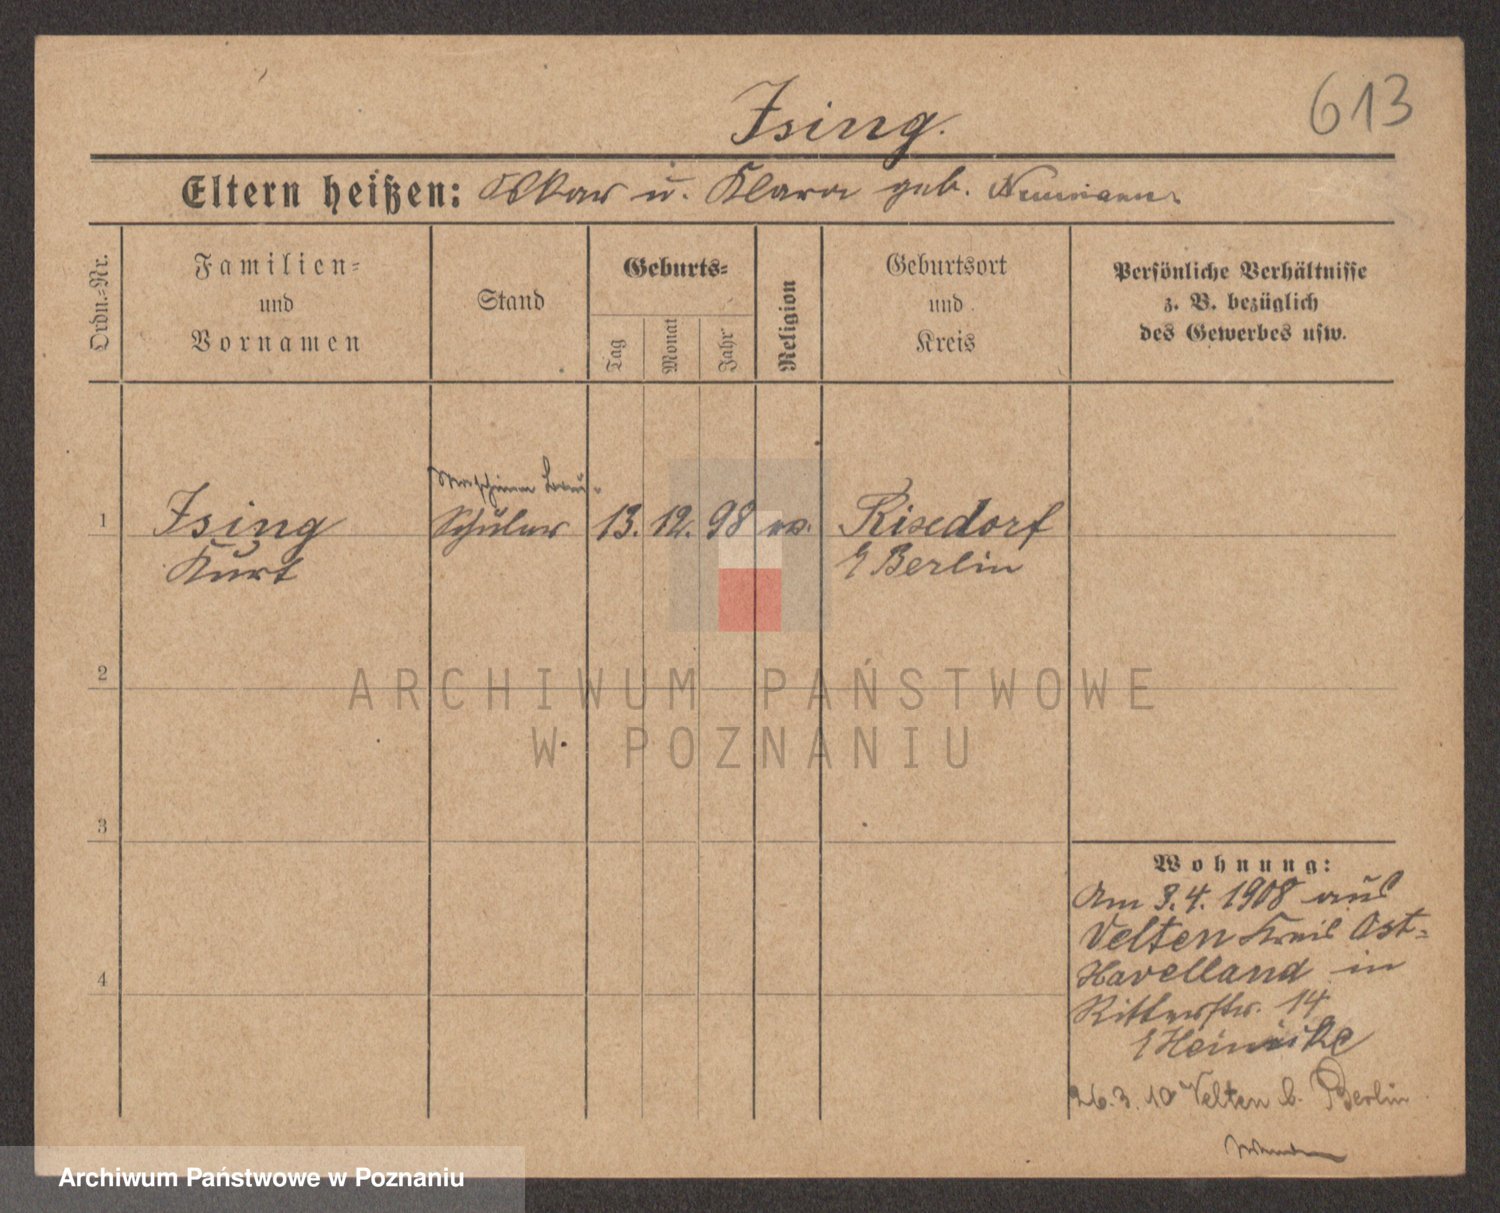 613
Ising.
Eltern heißen: Oskar u. Klara geb. Neumann
Ordn.-Nr.
Familien-
und
Vornamen
Stand
Geburts-
Tag
Monat
Jahr
Religion
Geburtsort
und
Kreis
Persönliche Verhältnisse
z. B. bezüglich
des Gewerbes usw.
Maschinenbau-
1 Ising Schüler 13. 12. 98 ev. Rixdorf
Kurt Berlin
2
ARCHIWUM PAŃSTWOWE
W POZNANIU
3
Wohnung:
Am 3.4. 1908 aus
Velten Kreis Ost-
Havelland in
4
Ritterstr. 14
Heinicke
26.3.10 Velten b. Berlin
Archiwum Państwowe w Poznaniu